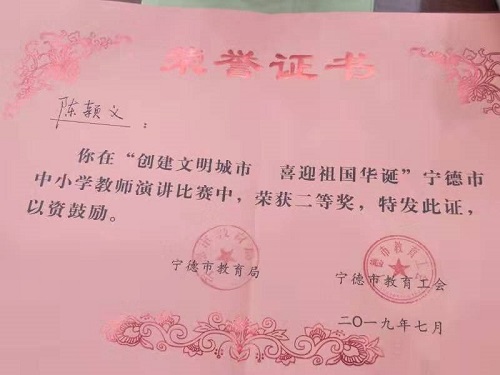 荣誉证书
陈颖文：
你在“创建文明城市 喜迎祖国华诞”宁德市
中小学教师演讲比赛中，荣获二等奖，特发此证，
以资鼓励。
宁德市教育局 宁德市教育工会
二〇一九年七月